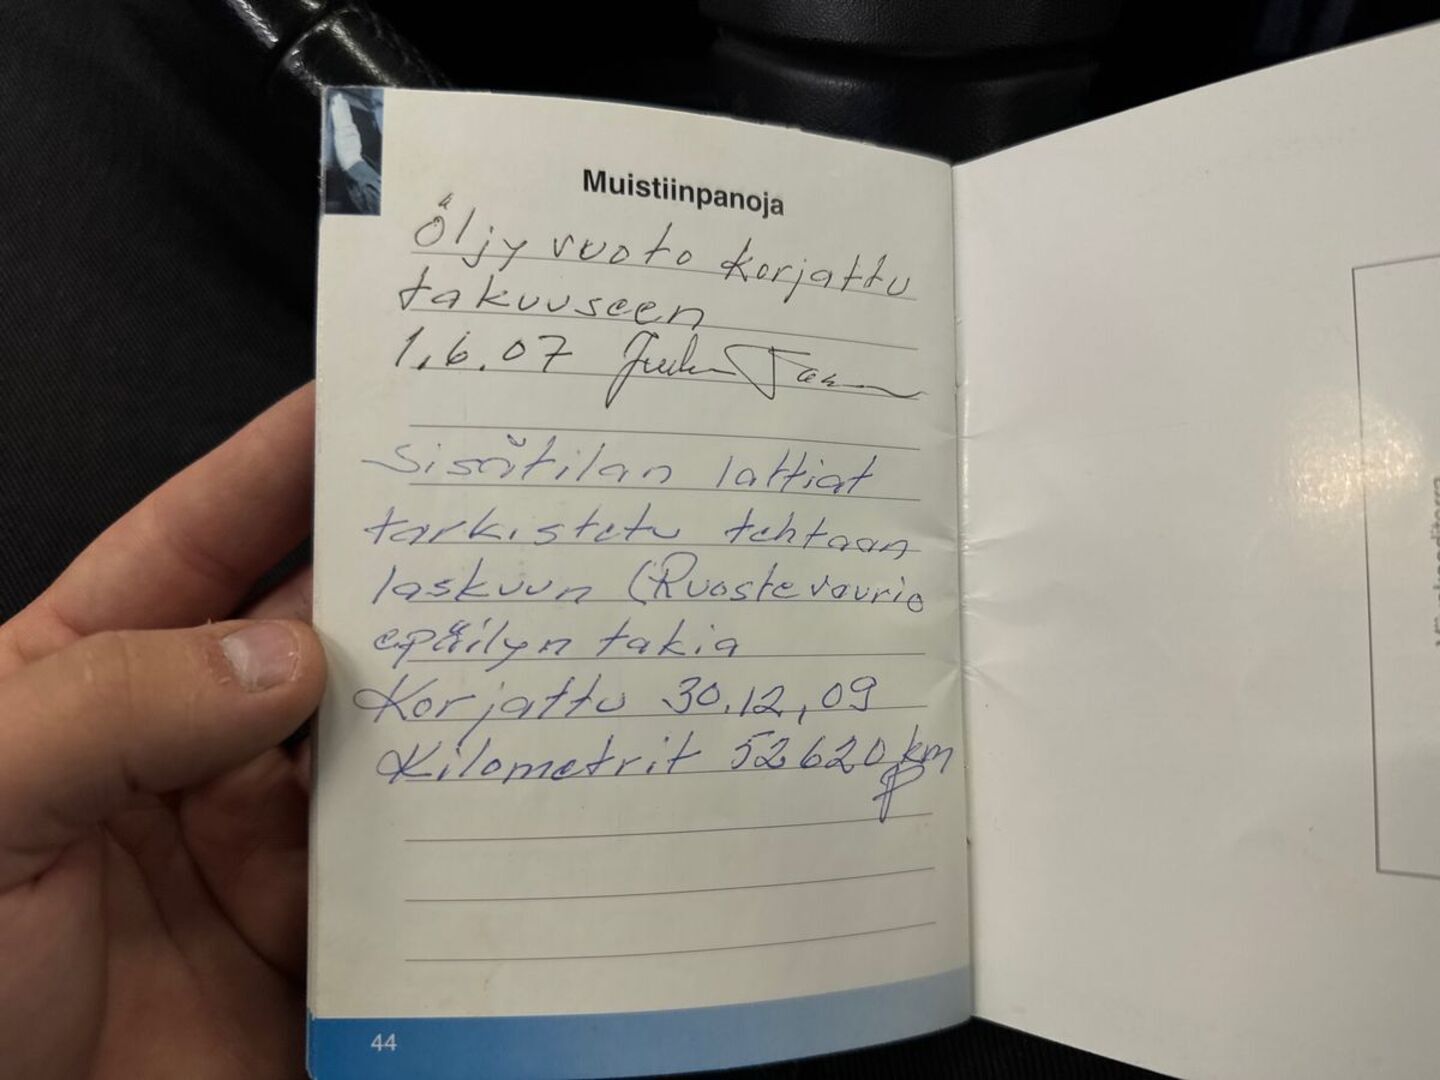 Muistiinpanoja
Öljy vuoto korjattu
takuuseen
1.6.07
Sisätilan lattiat
tarkistetu tehtaan
laskuun (Ruostevaurio
epäilyn takia
Korjattu 30.12,09
Kilometrit 52620 km
44